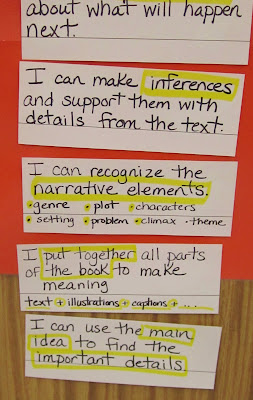 about what will happen
next.
I can make inferences
and support them with
details from the text.
I can recognize the
narrative elements.
• genre • plot • characters
• setting • problem • climax • theme
I put together all parts
of the book to make
meaning
text + illustrations + captions + ...
I can use the main
idea to find the
important details.